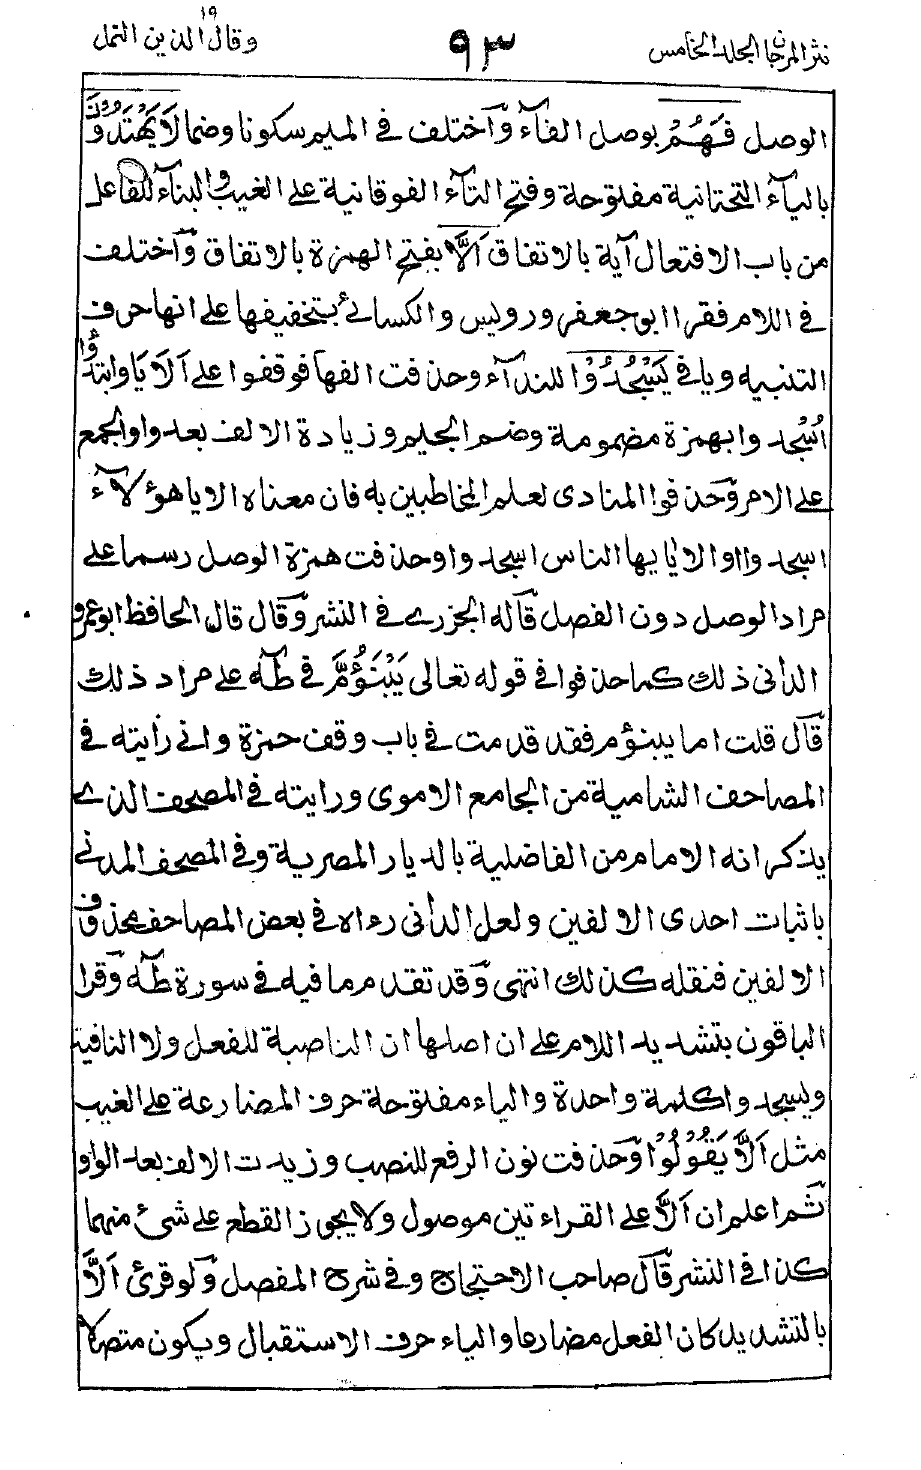 نثر المرجان الجلد الخامس
٩٣
وقال الذين ١٩ النمل
الوصل فَهُمْ بوصل الفآء وآختلف فى الميم سكونا وضما لَا يَهْتَدُوْنَ
بالياء التحتانية مفتوحة وفتح التآء الفوقانية على الغيب والبناء للفاعل
من باب الافتعال آية بالاتفاق اَلَّا بفتح الهمزة بالاتفاق وآختلف
فى اللام فقرا ابو جعفر ورويس والكسائى بتخفيفها على انها حرف
التنبيه ويا فى يَسْجُدُوْا للندآء وحذفت الفها فوقفوا على اَلَا يَا وابتدؤا
اُسْجُدوا بهمزة مضمومة وضم الجيم وزيادة الالف بعد واو الجمع
على الامر وحذفوا المنادى لعلم المخاطبين به فان معناه الا يا هؤلآء
اسجدوا او الا يا يها الناس اسجدوا وحذفت همزة الوصل رسما على
مراد الوصل دون الفصل قاله الجزرى فى النشر وقال قال الحافظ ابو عمرو
الدانى ذلك كما حذفوا فى قوله تعالى يَبْنَؤُمَّ فى طٓه على مراد ذلك
قال قلت اما يبنؤم فقد قدمت فى باب وقف حمزة وانى رأيته فى
المصاحف الشامية من الجامع الاموى ورايته فى المصحف الذى
يذكر انه الامام من الفاضلية بالديار المصرية وفى المصحف المدنى
باثبات احدى الالفين ولعل الدانى رءاه فى بعض المصاحف بحذف
الالفين فنقله كذلك انتهى وقد تقدم ما فيه فى سورة طٓه وقرا
الباقون بتشديد اللام على ان اصلها ان الناصبة للفعل ولا النافية
ويسجدوا كلمة واحدة والياء مفتوحة حرف المضارعة على الغيب
مثل اَلَّا يَقُوْلُوْا وحذفت نون الرفع للنصب وزيدت الالف بعد الواو
ثم اعلم ان اَلَّا على القراءتين موصول ولا يجوز القطع على شئ منهما
كذا فى النشر قال صاحب الاحتجاج وفى شرح المفصل ولو قرئ اَلَّا
بالتشديد كان الفعل مضارعا والياء حرف الاستقبال ويكون متصلا